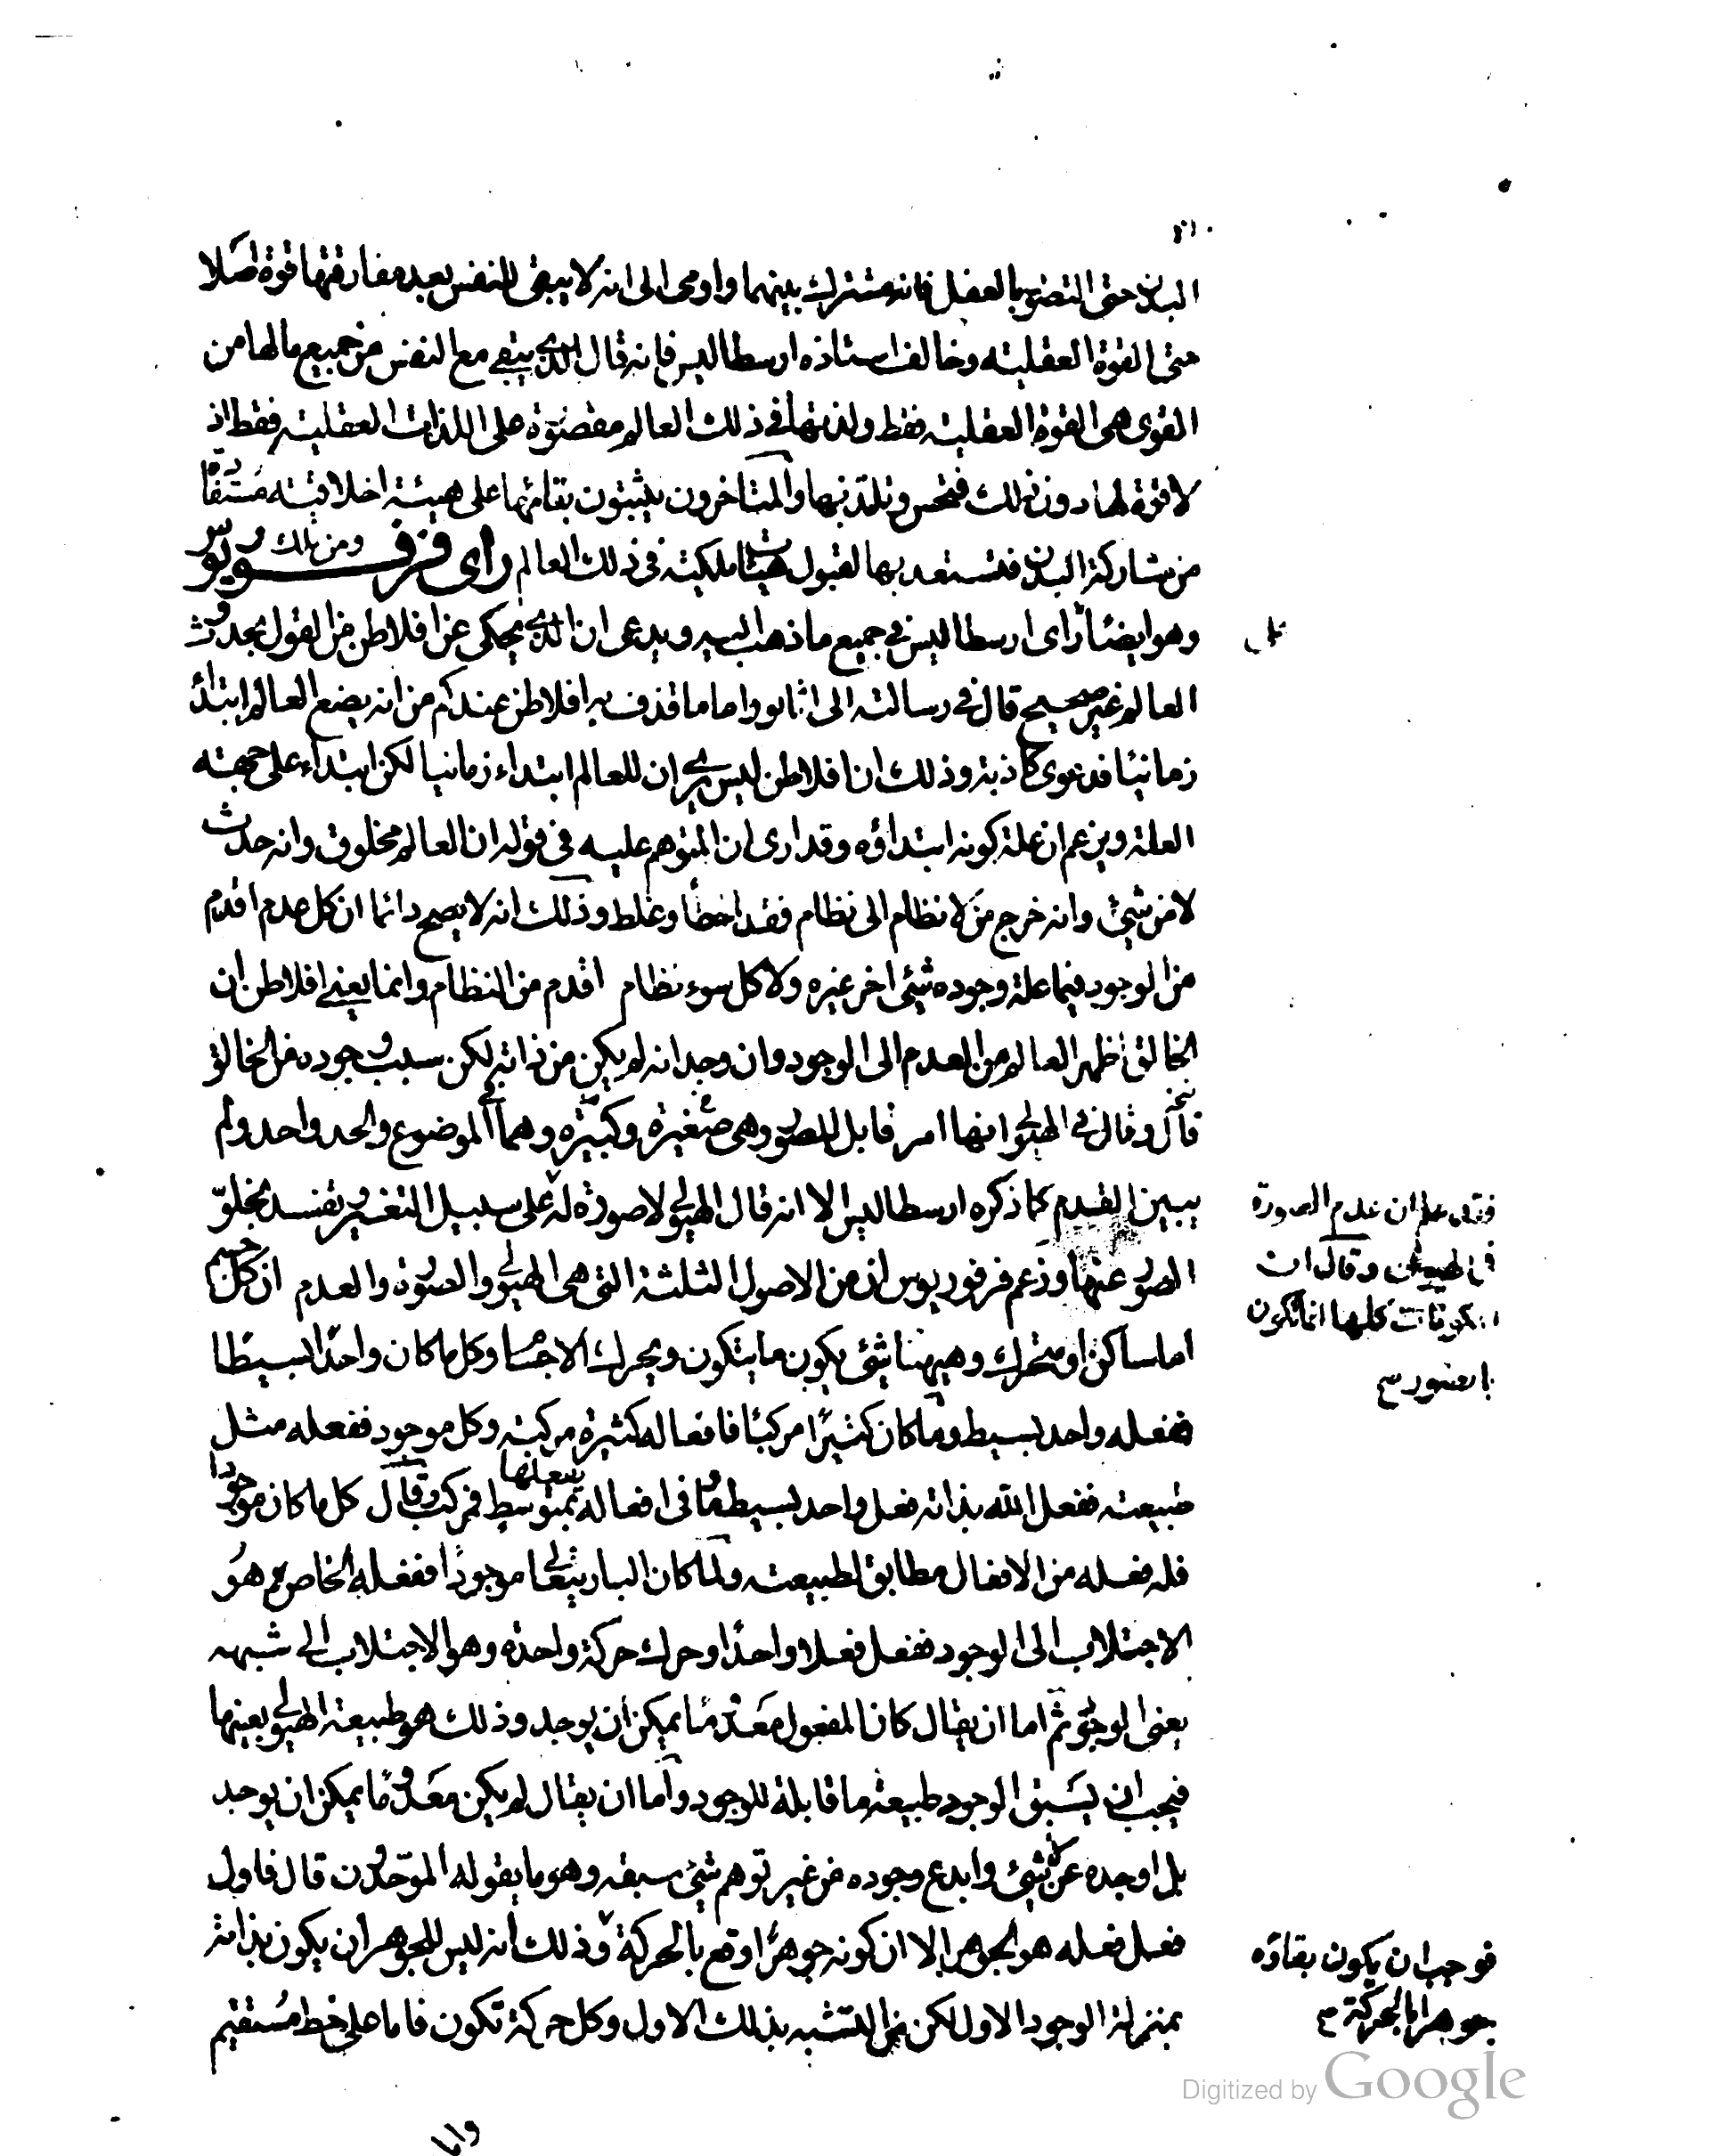 البدن حتى التصور بالعقل فانه مشترك بينهما واومى الى انه لا يبقى للنفس بعد مفارقتها قوة اصلا
حتى القوة العقلية وخالف استاذه ارسطاليس فانه قال الذي يبقى مع النفس من جميع ما لها من
القوى هى القوة العقلية فقط ولذتها في ذلك العالم مقصورة على اللذات العقلية فقط اذ
لا قوة لها دون ذلك فتحس وتلتذ بها والمتاخرون يثبتون بقائها على هيئة اخلاقية مستفادة
من مشاركة البدن فتستعد بها لقبول هيئات ملكية في ذلك العالم ومن ذلك راى فرفوريوس
وهو ايضا راى ارسطاليس في جميع ما ذهب اليه ويدعى ان الذي يحكى عن افلاطن من القول بحدوث
العالم غير صحيح قال في رسالته الى انابو واما ما قذف به افلاطن عندكم من انه يضع العالم ابتداءً
زمانيا فدعوى كاذبة وذلك ان افلاطن ليس يرى ان للعالم ابتداء زمانيا لكن ابتداء على جهته
العلة ويزعم ان علة كونه ابتداؤه وقد ارى ان المتوهم عليه في قوله ان العالم مخلوق وانه حدث
لا من شيئ وانه خرج من لا نظام الى نظام فقد اخطأ وغلط وذلك انه لا يصح دائما ان كل عدم اقدم
من الوجود فيما علة وجوده شيئ اخر غيره ولا كل سوء نظام اقدم من النظام وانما يعني افلاطن ان
الخالق اظهر العالم من العدم الى الوجود وان وجدانه لم يكن من ذاته لكن سبب وجوده من الخالق
قال وقال في الهيولى انها امر قابل للصور وهى صغيرة وكبيرة وهما في الموضوع والحد واحد ولم
يبين القدم كما ذكره ارسطاليس الا انه قال الهيولى لا صورة له على سبيل التغير بخلو
فقد علم ان عدم الصورة
الصور عنها وزعم فرفوريوس ان من الاصول الثلثة التي هى الهيولى والصورة والعدم ان كل جسم
في الهيولى وقال ان
المكونات كلها انما تكون
اما ساكن او متحرك وههنا شيئ يكون ما يتكون ويحرك الاجسام وكل ما كان واحدا بسيطا
بالصور
ففعله واحد بسيط وما كان كثيرا مركبا فافعاله كثيرة مركبة وكل موجود ففعله مثل
طبيعته ففعل الله بذاته فعل واحد بسيط وما في افعاله يفعلها بمتوسط فمركب وقال كل ما كان موجودا
فله فعله من الافعال مطابق لطبيعته ولما كان الباري تعالى موجودا ففعله الخاص هو
الاجتلاب الى الوجود ففعل فعلا واحدا وحرك حركة واحدة وهو الاجتلاب الى شبهه
يعنى الوجود ثم اما ان يقال كان المفعول معدوما يمكن ان يوجد وذلك هو طبيعة الهيولى بعينها
فيجب ان يسبق الوجود طبيعة ما قابلة للوجود واما ان يقال لم يكن معدوما يمكن ان يوجد
بل اوجده عن لا شيئ وابدع وجوده من غير توهم شيئ سبقه وهو ما يقوله الموحدون قال فاول
فعل فعله هو الجوهر الا ان كونه جوهرا وقع بالحركة وذلك انه ليس للجوهر ان يكون بذاته
فوجب ان يكون بقاؤه
جوهرا بالحركة
بمنزلة الوجود الاول لكن من التشبه بذلك الاول وكل حركة تكون فاما على خط مستقيم
واما
Digitized by Google